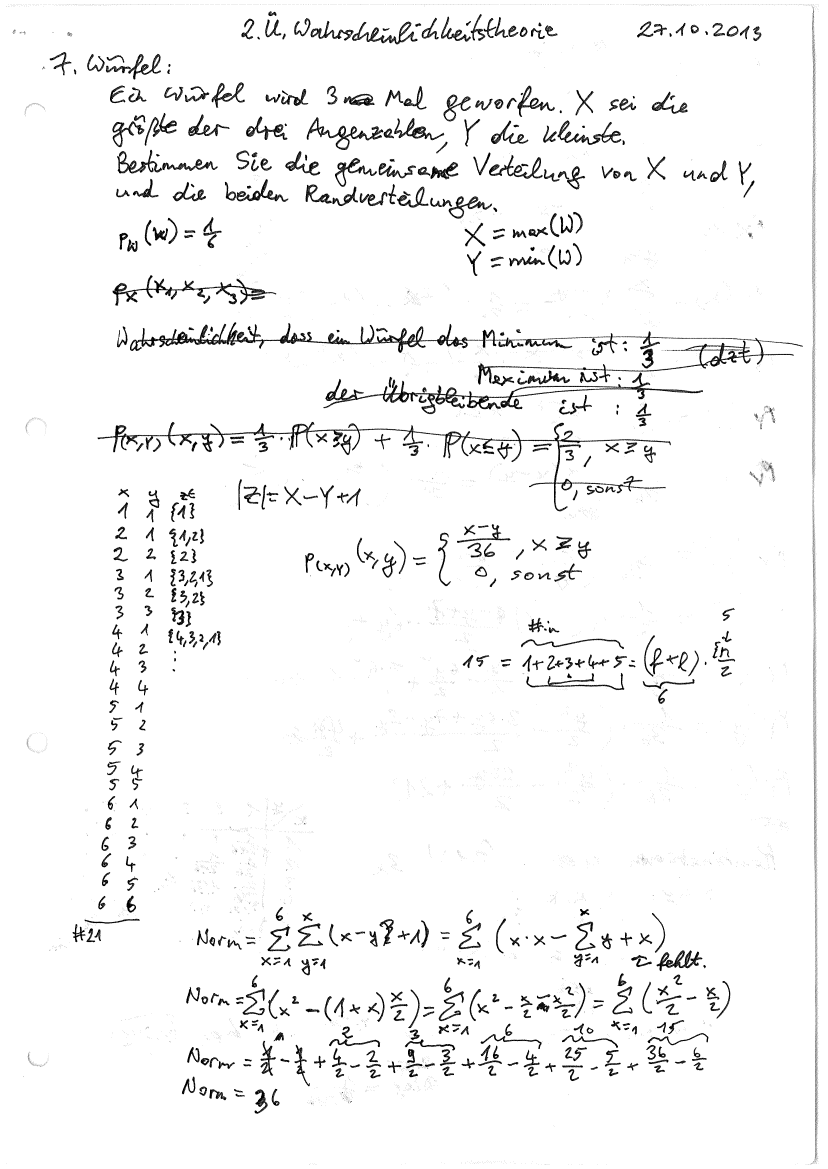 2. Ü, Wahrscheinlichkeitstheorie 27.10.2013
7. Würfel:
Ein Würfel wird 3 Mal geworfen. X sei die
größte der drei Augenzahlen, Y die kleinste.
Bestimmen Sie die gemeinsame Verteilung von X und Y,
und die beiden Randverteilungen.
p_W(W) = 1/6 X = max(W)
Y = min(W)
p_X(x_1, x_2, x_3) =
Wahrscheinlichkeit, dass ein Würfel das Minimum ist: 1/3 (dzt)
Maximum ist: 1/3
der Übrigbleibende ist: 1/3
P_(X,Y)(x,y) = 1/3 · P(x≥y) + 1/3 · P(x≤y) = { 2/3, x≥y
0, sonst
x y z∈ |Z| = X-Y+1
1 1 {1}
2 1 {1,2}
2 2 {2}
3 1 {3,2,1}
3 2 {3,2}
3 3 {3}
4 1 {4,3,2,1}
4 2 ⋮
4 3
4 4
5 1
5 2
5 3
5 4
5 5
6 1
6 2
6 3
6 4
6 5
6 6
#21
P_(X,Y)(x,y) = { x-y/36, x≥y
0, sonst
#in 5
15 = 1+2+3+4+5 = (f+l) · n/2
6
Norm = Σ_{x=1}^{6} Σ_{y=1}^{x} (x-y+1) = Σ_{x=1}^{6} (x·x - Σ_{y=1}^{x} y + x)
fehlt.
Norm = Σ_{x=1}^{6} (x² - (1+x) x/2) = Σ_{x=1}^{6} (x² - x/2 - x²/2) = Σ_{x=1}^{6} (x²/2 - x/2)
2 3 6 10 15
Norm = 1/2 - 1/2 + 4/2 - 2/2 + 9/2 - 3/2 + 16/2 - 4/2 + 25/2 - 5/2 + 36/2 - 6/2
Norm = 36